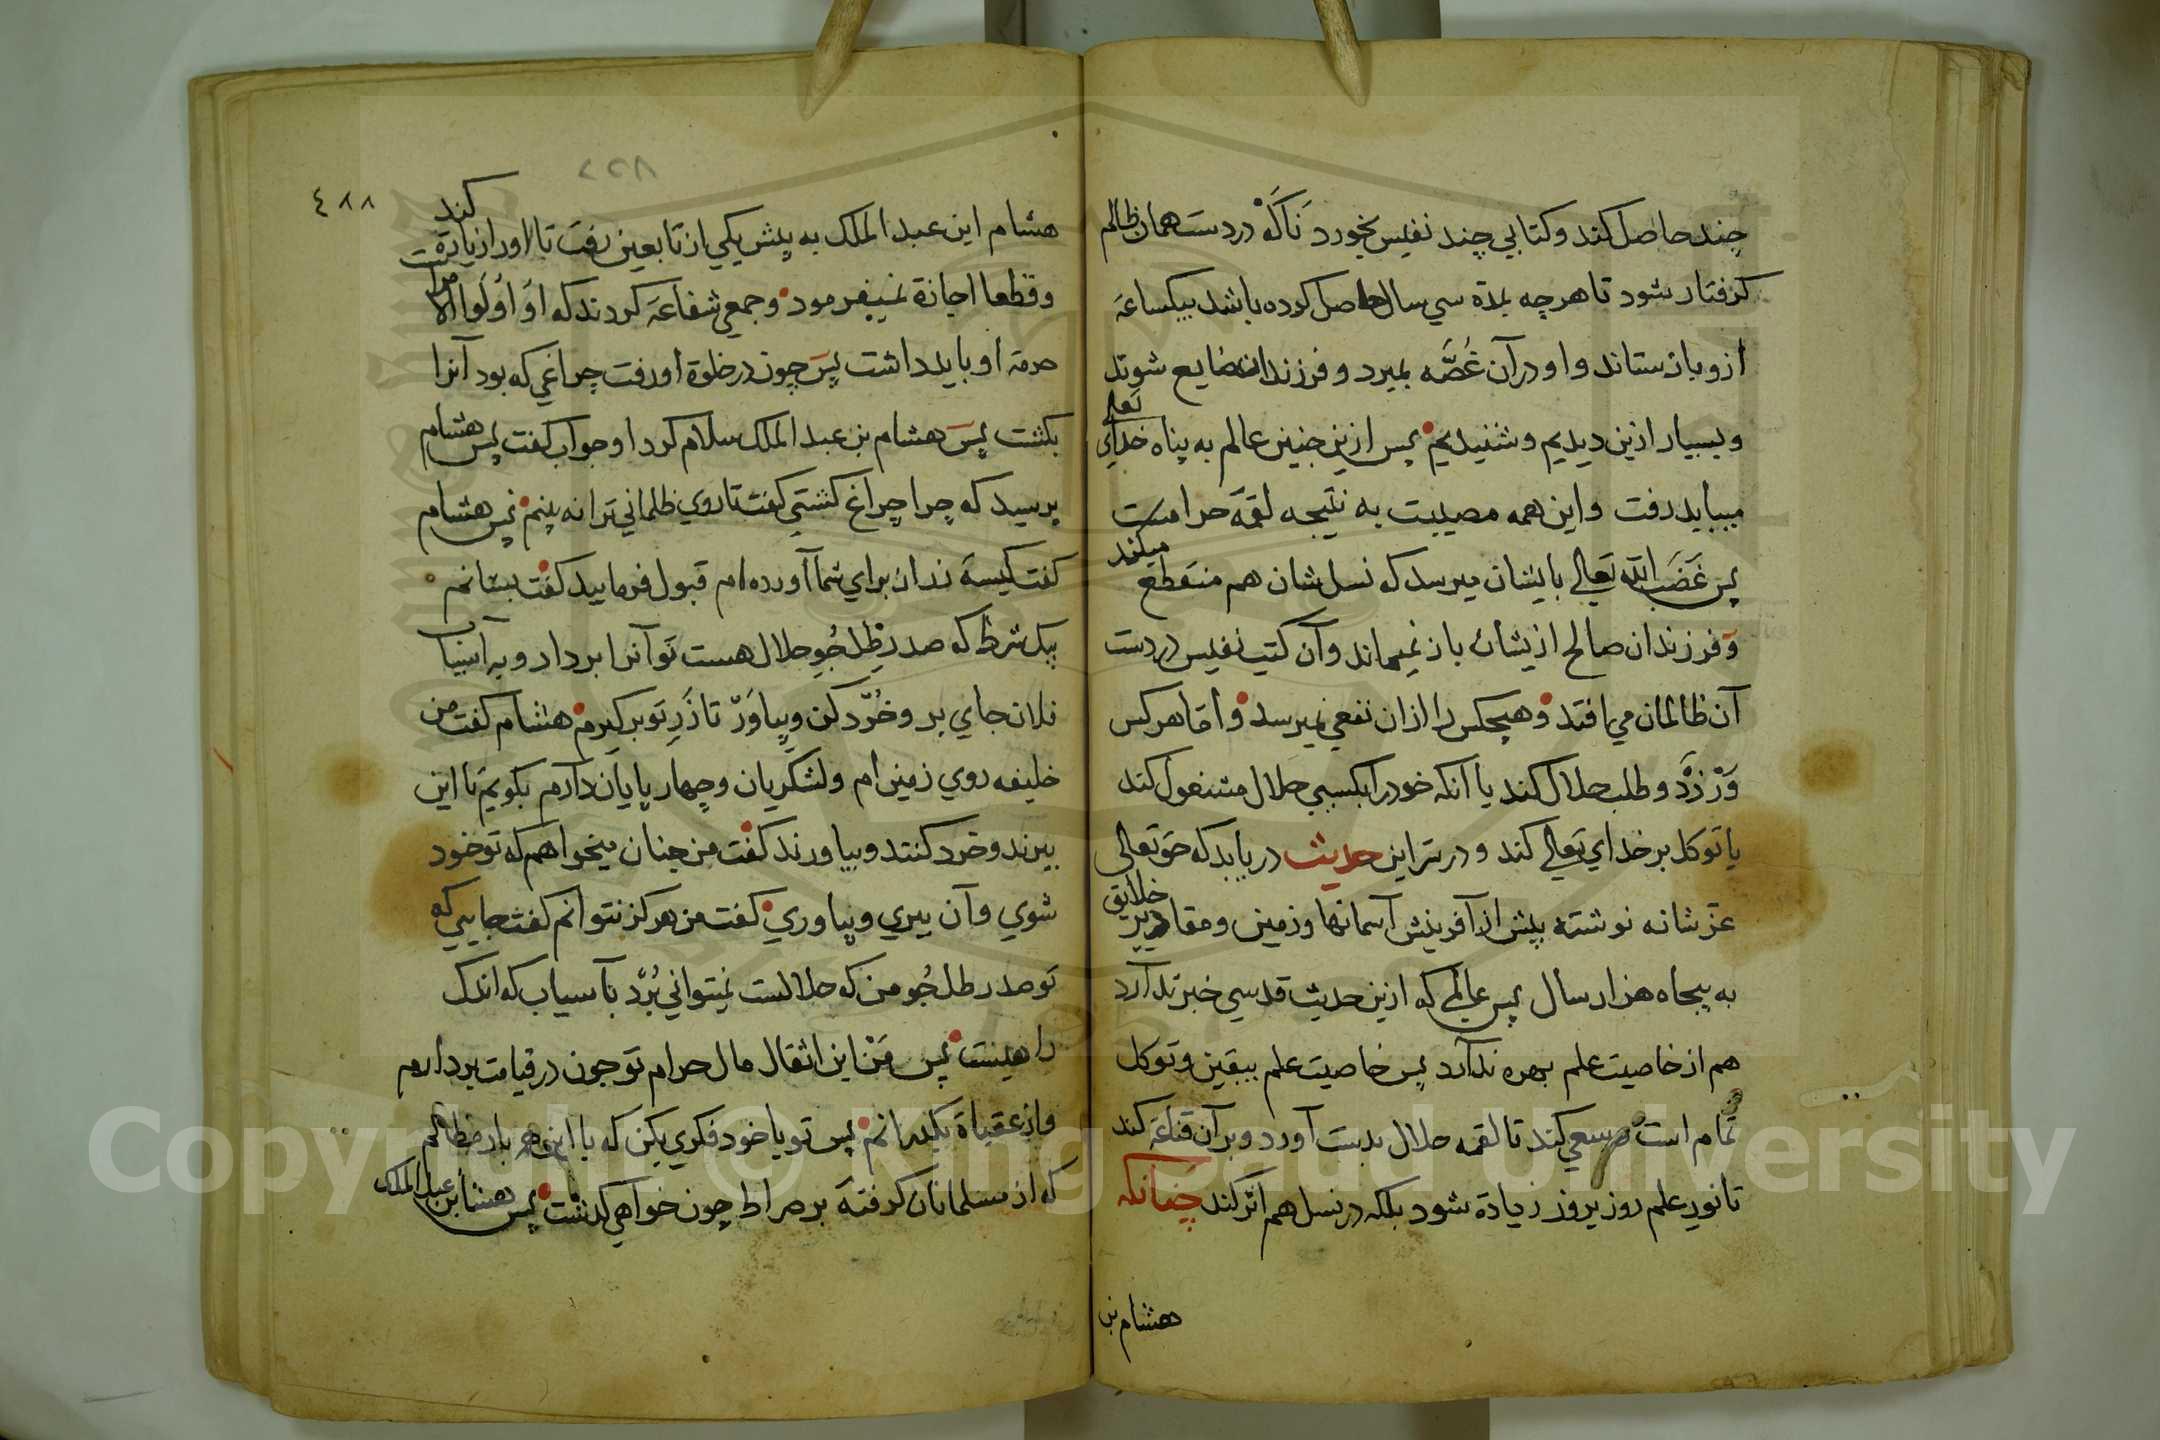 چند حاصل کند و کتابی چند نفیس بخورد نَاکَهْ در دست همان ظالم
کرفتار شود تا هر چه بمدة سي سال حاصل کرده باشد بیکساعة
ازو باز ستاند و او در آن غُصَّه بمیرد و فرزندانه ضایع شوند
و بسیار ازین دیدیم و شنیدیم پس ازین چنین عالم به پناه خدای تعالی
میباید رفت و این همه مصیبت به نتیجه لقمهٔ حرامست
پس غَضَب الله تعالی بایشان میرسد که نسل شان هم منقطع میکند
و فرزندان صالح ازیشان باز نمیماند و آن کتب نفیس در دست
آن ظالمان می افتد و هیچکس را ازان نفعي نمیرسد و أما هر کس
وَرْزَد و طلب حلال کند یا آنکه خود را بکسبي حلال مشغول کند
یا توکل بر خدای تعالی کند و در سر این حدیث دریابد که حق تعالی
عز شانه نوشته پیش از آفرینش آسمانها و زمین و مقادیر خلایق
به پنجاه هزار سال پس عالمی که ازین حدیث قدسي خبر ندارد
هم از خاصیت علم بهره ندارد پس خاصیت علم بیقین و توکل
تمام است سعي کند تا لقمه حلال بدست آورد و بر آن قناعة کند
تا نور علم روز بروز زیادة شود بلکه در نسل هم اثر کند چنانکه
هشام بن
٤٨٨
هشام این عبد الملک به پیش یکي از تابعین رفت تا اورا زیارة کند
و قطعا اجازة نمیفرمود و جمعي شفاعة کردند که او اُولُوا الامر است
حرمة او باید داشت پس چون در خلوة أو رفت چراغي که بود آنرا
بکشت پس هشام بن عبد الملک سلام کرد او جواب کفت پس هشام
پرسید که چرا چراغ کشتي کفت تا روي ظلماني ترا نه بینم پس هشام
کفت کیسهٔ زر از برای شما آورده ام قبول فرمایید کفت بستانم
بیک شرط که صد رِطِل جُوِ حلال هست تو آنرا بردار و به آسیاب
فلان جاي بر و خُرّد کن و بیاوَرْ تا زَرِ تو بر کیرم هشام کفت من
خلیفه روي زمین أم و لشکریان و چهار پایان دارم بکویم تا این
ببرند و خرد کنند و بیاورند کفت من چنان میخواهم که تو خود
شوي و آن ببري و بیاوري کفت من هرکز نتوانم کفت جایي که
تو صد رطل جُو من که حلالست نمیتواني بُرْد بآسیاب که اندک
راهیست پس مَنْ این اثقال مال حرام تو چون در قیامت بردارم
و از عقباة بکذرانم پس تو با خود فکري بکن که با این همه بار مظالم
که از مسلمانان کرفتهٔ بر صراط چون خواهي کذشت پس هشام بن عبد الملک